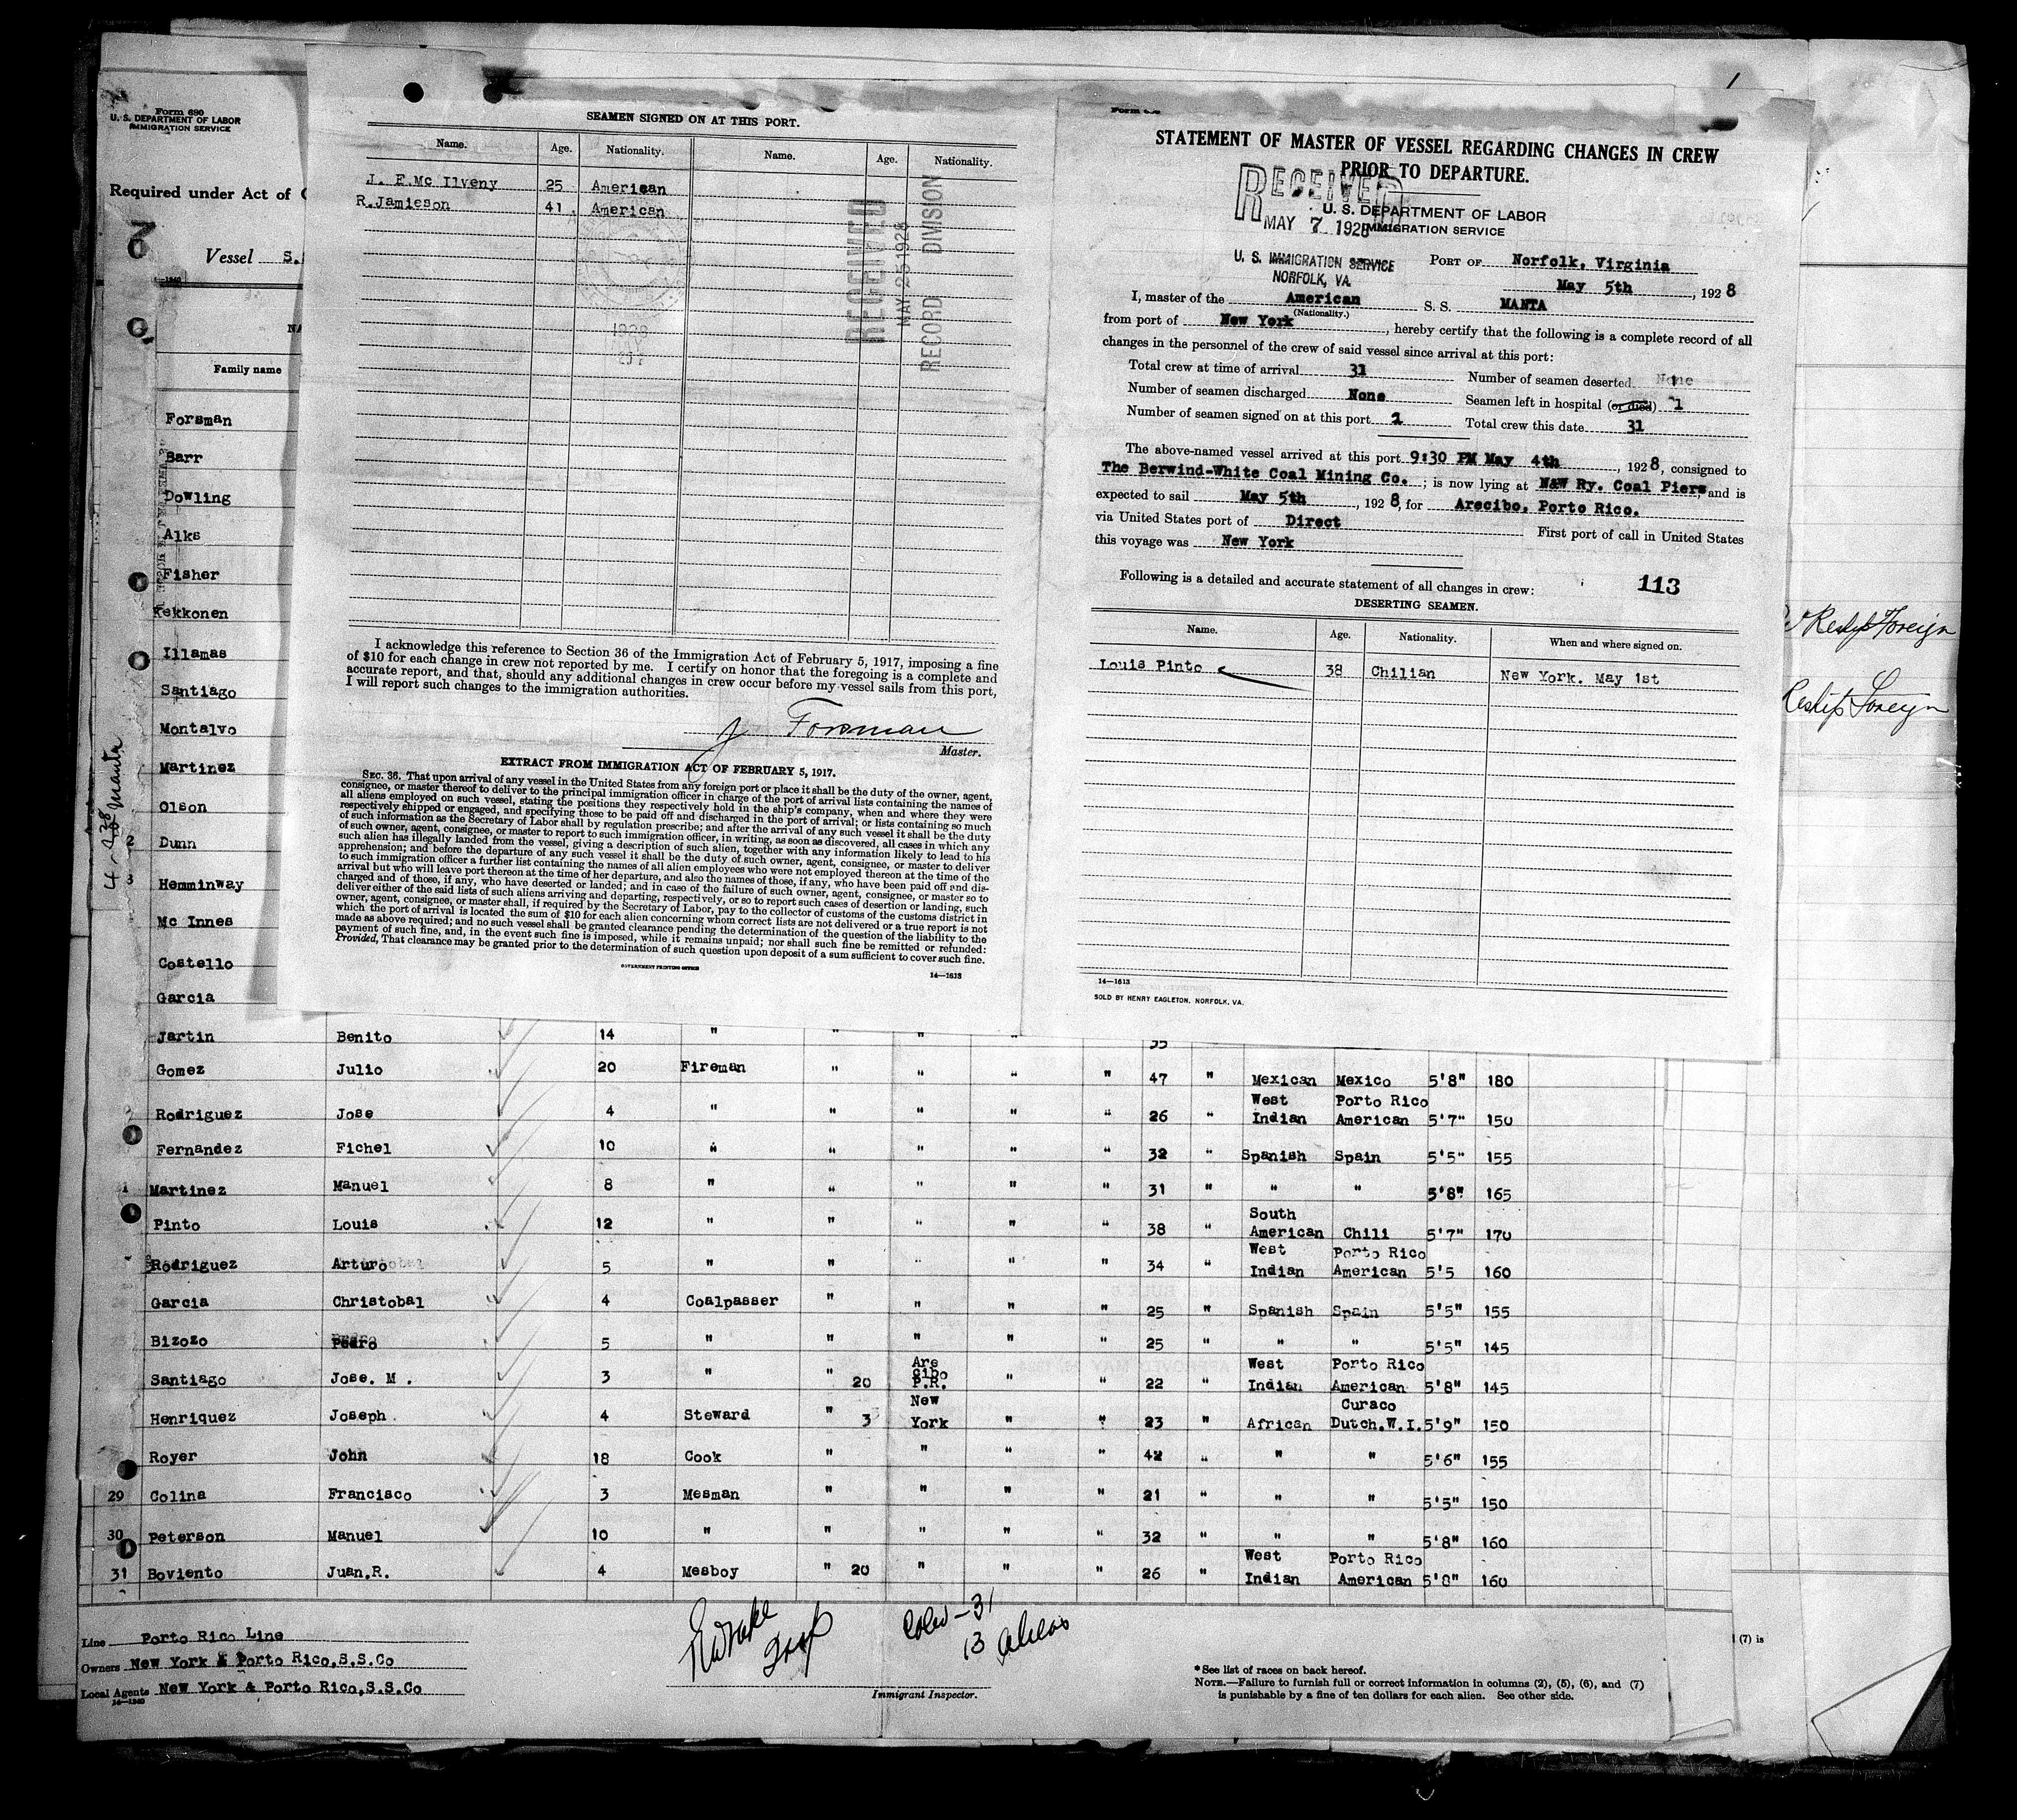 SEAMEN SIGNED ON AT THIS PORT.
Name. Age. Nationality. Name. Age. Nationality.
J. F.Mc Ilveny 25 American
R.Jamieson 41 American
RECEIVED
MAY 25 1928
RECORD DIVISION
1928
I acknowledge this reference to Section 36 of the Immigration Act of February 5, 1917, imposing a fine
of $10 for each change in crew not reported by me. I certify on honor that the foregoing is a complete and
accurate report, and that, should any additional changes in crew occur before my vessel sails from this port,
I will report such changes to the immigration authorities.
J Forsman
Master.
EXTRACT FROM IMMIGRATION ACT OF FEBRUARY 5, 1917.
SEC. 36. That upon arrival of any vessel in the United States from any foreign port or place it shall be the duty of the owner, agent,
consignee, or master thereof to deliver to the principal immigration officer in charge of the port of arrival lists containing the names of
all aliens employed on such vessel, stating the positions they respectively hold in the ship's company, when and where they were
respectively shipped or engaged, and specifying those to be paid off and discharged in the port of arrival; or lists containing so much
of such information as the Secretary of Labor shall by regulation prescribe; and after the arrival of any such vessel it shall be the duty
of such owner, agent, consignee, or master to report to such immigration officer, in writing, as soon as discovered, all cases in which any
such alien has illegally landed from the vessel, giving a description of such alien, together with any information likely to lead to his
apprehension; and before the departure of any such vessel it shall be the duty of such owner, agent, consignee, or master to deliver
to such immigration officer a further list containing the names of all alien employees who were not employed thereon at the time of the
arrival but who will leave port thereon at the time of her departure, and also the names of those, if any, who have been paid off and dis-
charged and of those, if any, who have deserted or landed; and in case of the failure of such owner, agent, consignee, or master so to
deliver either of the said lists of such aliens arriving and departing, respectively, or so to report such cases of desertion or landing, such
owner, agent, consignee, or master shall, if required by the Secretary of Labor, pay to the collector of customs of the customs district in
which the port of arrival is located the sum of $10 for each alien concerning whom correct lists are not delivered or a true report is not
made as above required; and no such vessel shall be granted clearance pending the determination of the question of the liability to the
payment of such fine, and, in the event such fine is imposed, while it remains unpaid; nor shall such fine be remitted or refunded:
Provided, That clearance may be granted prior to the determination of such question upon deposit of a sum sufficient to cover such fine.
GOVERNMENT PRINTING OFFICE
14—1613
STATEMENT OF MASTER OF VESSEL REGARDING CHANGES IN CREW
PRIOR TO DEPARTURE.
RECEIVED
MAY 7 1928
U. S. DEPARTMENT OF LABOR
IMMIGRATION SERVICE
U. S. IMMIGRATION SERVICE
NORFOLK, VA.
PORT OF Norfolk, Virginia
May 5th, 1928
I, master of the American S. S. MANTA
(Nationality.)
from port of New York, hereby certify that the following is a complete record of all
changes in the personnel of the crew of said vessel since arrival at this port:
Total crew at time of arrival 31 Number of seamen deserted
Number of seamen discharged None Seamen left in hospital (or died) 1
Number of seamen signed on at this port 2 Total crew this date 31
The above-named vessel arrived at this port 9:30 PM May 4th, 1928, consigned to
The Berwind-White Coal Mining Co. ; is now lying at N&W Ry. Coal Piers, and is
expected to sail May 5th, 1928, for Arecibo, Porto Rico.
via United States port of Direct First port of call in United States
this voyage was New York
Following is a detailed and accurate statement of all changes in crew: 113
DESERTING SEAMEN.
Name. Age. Nationality. When and where signed on.
Louis Pinto 38 Chilian New York. May 1st
14—1613
SOLD BY HENRY EAGLETON, NORFOLK, VA.
Form 680
U. S. DEPARTMENT OF LABOR
IMMIGRATION SERVICE
Required under Act of
Vessel S.
Family name
Forsman
Barr
Dowling
Alks
Fisher
Kekkonen
Illamas
Santiago
Montalvo
Martinez
Olson
2 Dunn
3 Hemminway
Mc Innes
Costello
Garcia
Jartin Benito 14 " " " " 35
Gomez Julio 20 Fireman " " " " 47 " Mexican Mexico 5'8" 180
Rodriguez Jose 4 " " " " " 26 " West Indian Porto Rico American 5'7" 150
Fernandez Fichel 10 " " " " " 32 " Spanish Spain 5'5" 155
Martinez Manuel 8 " " " " " 31 " " " 5'8" 165
Pinto Louis 12 " " " " " 38 " South American Chili 5'7" 170
Rodriguez Arturo 5 " " " " " 34 " West Indian Porto Rico American 5'5 160
Garcia Christobal 4 Coalpasser " " " " 25 " Spanish Spain 5'5" 155
Bizozo Pedro 5 " " " " " 25 " " " 5'5" 145
Santiago Jose. M . 3 " " 20 Are cibo P.R. " " 22 " West Indian Porto Rico American 5'8" 145
Henriquez Joseph 4 Steward " 3 New York " " 23 " African Curaco Dutch.W.I. 5'9" 150
Royer John 18 Cook " " " " 42 " " " 5'6" 155
29 Colina Francisco 3 Mesman " " " " 21 " " " 5'5" 150
30 Peterson Manuel 10 " " " " " 32 " " " 5'8" 160
31 Boviento Juan.R. 4 Mesboy " 20 " " " 26 " West Indian Porto Rico American 5'8" 160
Line Porto Rico Line
Owners New York & Porto Rico.S.S.Co
Local Agents New York & Porto Rico.S.S.Co
14—1240
13 Aliens
Immigrant Inspector.
*See list of races on back hereof.
NOTE.—Failure to furnish full or correct information in columns (2), (5), (6), and (7)
is punishable by a fine of ten dollars for each alien. See other side.
(7) is
Reship Foreign
Reship Foreign
Manta